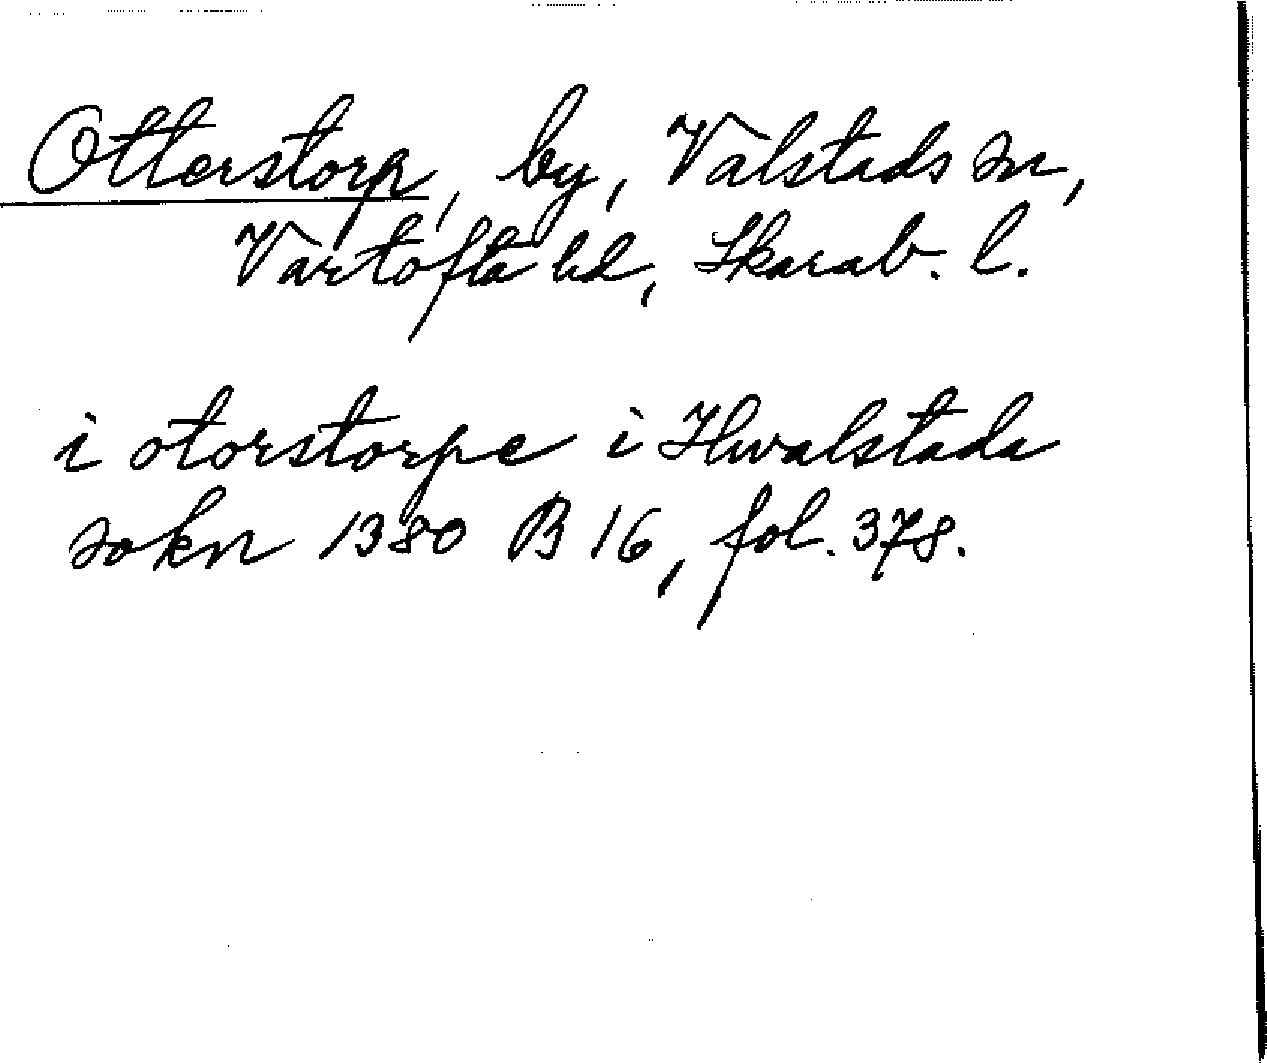 Otterstorp, by, Valstads sn,
Vartofta hd, Skarab. l.
i otorstorpe i Hwalstada
sokn 1380 B 16, fol. 378.